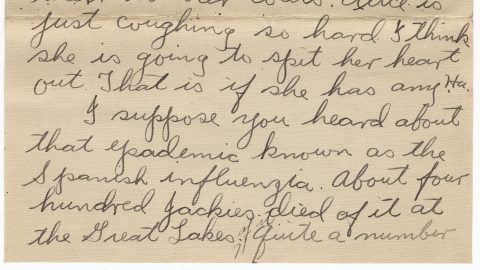 her cold. Alice is
just coughing so hard I think
she is going to spit her heart
out. That is if she has any Ha.
I suppose you heard about
that epademic known as the
Spanish influenzia. About four
hundred Jackies died of it at
the Great Lakes. Quite a number